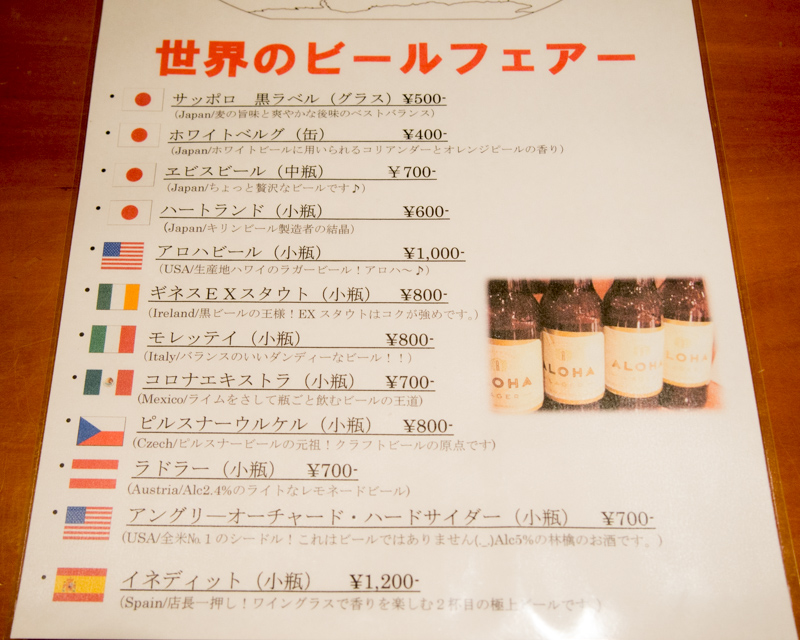 世界のビールフェアー
・ サッポロ 黒ラベル（グラス） ¥500-
(Japan/麦の旨味と爽やかな後味のベストバランス)
・ ホワイトベルグ（缶） ¥400-
(Japan/ホワイトビールに用いられるコリアンダーとオレンジピールの香り)
・ ヱビスビール（中瓶） ¥700-
(Japan/ちょっと贅沢なビールです♪)
・ ハートランド（小瓶） ¥600-
(Japan/キリンビール製造者の結晶)
・ アロハビール（小瓶） ¥1,000-
(USA/生産地ハワイのラガービール！アロハ～♪)
・ ギネスＥＸスタウト（小瓶） ¥800-
(Ireland/黒ビールの王様！EX スタウトはコクが強めです。)
・ モレッテイ（小瓶） ¥800-
(Italy/バランスのいいダンディーなビール！！)
・ コロナエキストラ（小瓶） ¥700-
(Mexico/ライムをさして瓶ごと飲むビールの王道)
・ ピルスナーウルケル（小瓶） ¥800-
(Czech/ピルスナービールの元祖！クラフトビールの原点です)
・ ラドラー（小瓶） ¥700-
(Austria/Alc2.4%のライトなレモネードビール)
・ アングリーオーチャード・ハードサイダー（小瓶） ¥700-
(USA/全米№１のシードル！これはビールではありません(._.)Alc5%の林檎のお酒です。)
・ イネディット（小瓶） ¥1,200-
(Spain/店長一押し！ワイングラスで香りを楽しむ２杯目の極上ビールです。)
OHA
ALOHA
ALOHA
LOHA